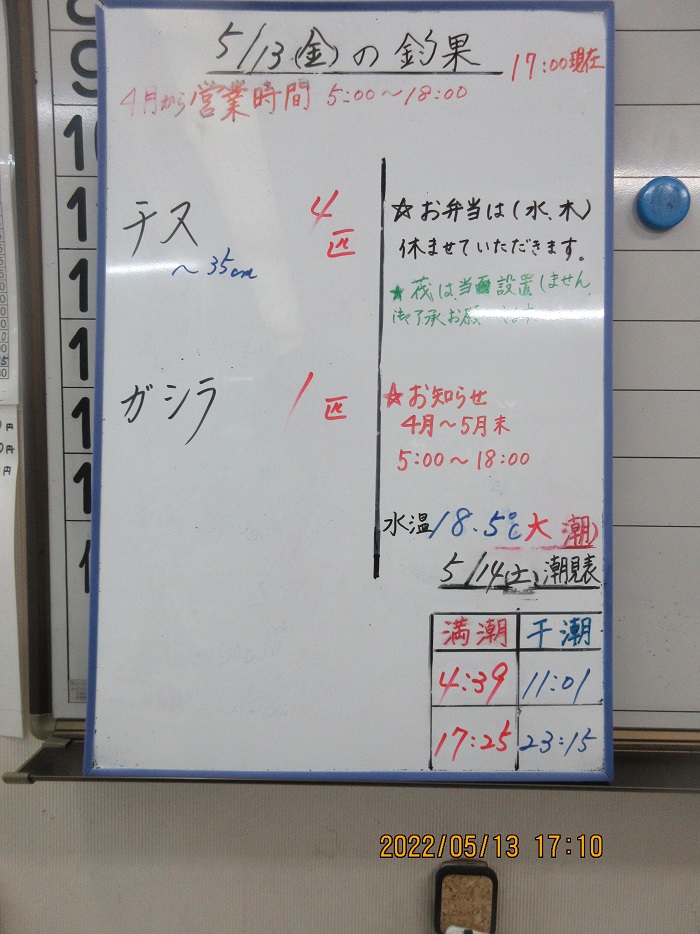 5/13(金)の釣果
17:00現在
4月から営業時間 5:00～18:00
チヌ 4匹
～35cm
ガシラ 1匹
☆お弁当は(水、木)
休ませていただきます。
★筏は当面設置しません
御了承お願
☆お知らせ
4月～5月末
5:00～18:00
水温18.5℃大潮
5/14(土)潮見表
満潮 干潮
4:39 11:01
17:25 23:15
2022/05/13 17:10